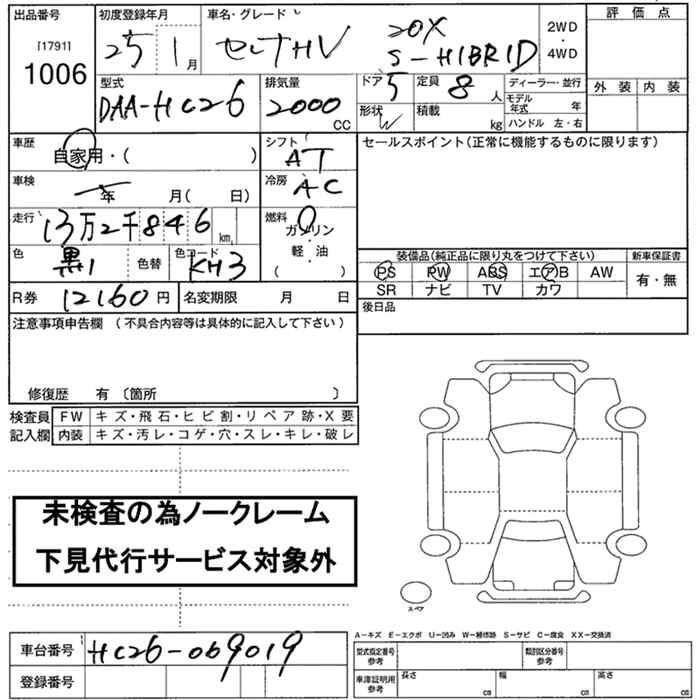 出品番号 初度登録年月 車名・グレード 2WD・4WD 評価点
[1791]
1006
25 1月 セレナHV 20X S-HIBRID
外装 内装
型式 排気量 ドア 定員 ディーラー・並行
DAA-HC26 2000 CC 5 8人 モデル年式 年
形状 W 積載 kg ハンドル 左・右
車歴 シフト セールスポイント(正常に機能するものに限ります)
自家用・( ) AT
車検 年 月( 日) 冷房 AC
走行 13万2千846km 燃料 ガソリン
軽・油
( )
色 黒1 色替 色コード KH3
装備品(純正品に限り丸をつけて下さい) 新車保証書
PS PW ABS エアB AW 有・無
SR ナビ TV カワ
R券 12160円 名変期限 月 日 後日品
注意事項申告欄 (不具合内容等は具体的に記入して下さい)
修復歴 有 〔箇所 〕
検査員 FW キズ・飛石・ヒビ割・リペア跡・X要
記入欄 内装 キズ・汚レ・コゲ・穴・スレ・キレ・破レ
未検査の為ノークレーム
下見代行サービス対象外
スペア
A-キズ E-エクボ U-凹み W-補修跡 S-サビ C-腐食 XX-交換済
車台番号 HC26-069019
型式指定番号 参考 類別区分番号 参考
登録番号
車庫証明用 参考 長さ cm 幅 cm 高さ cm